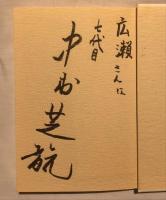 広瀬さんは
七代目
中村芝翫